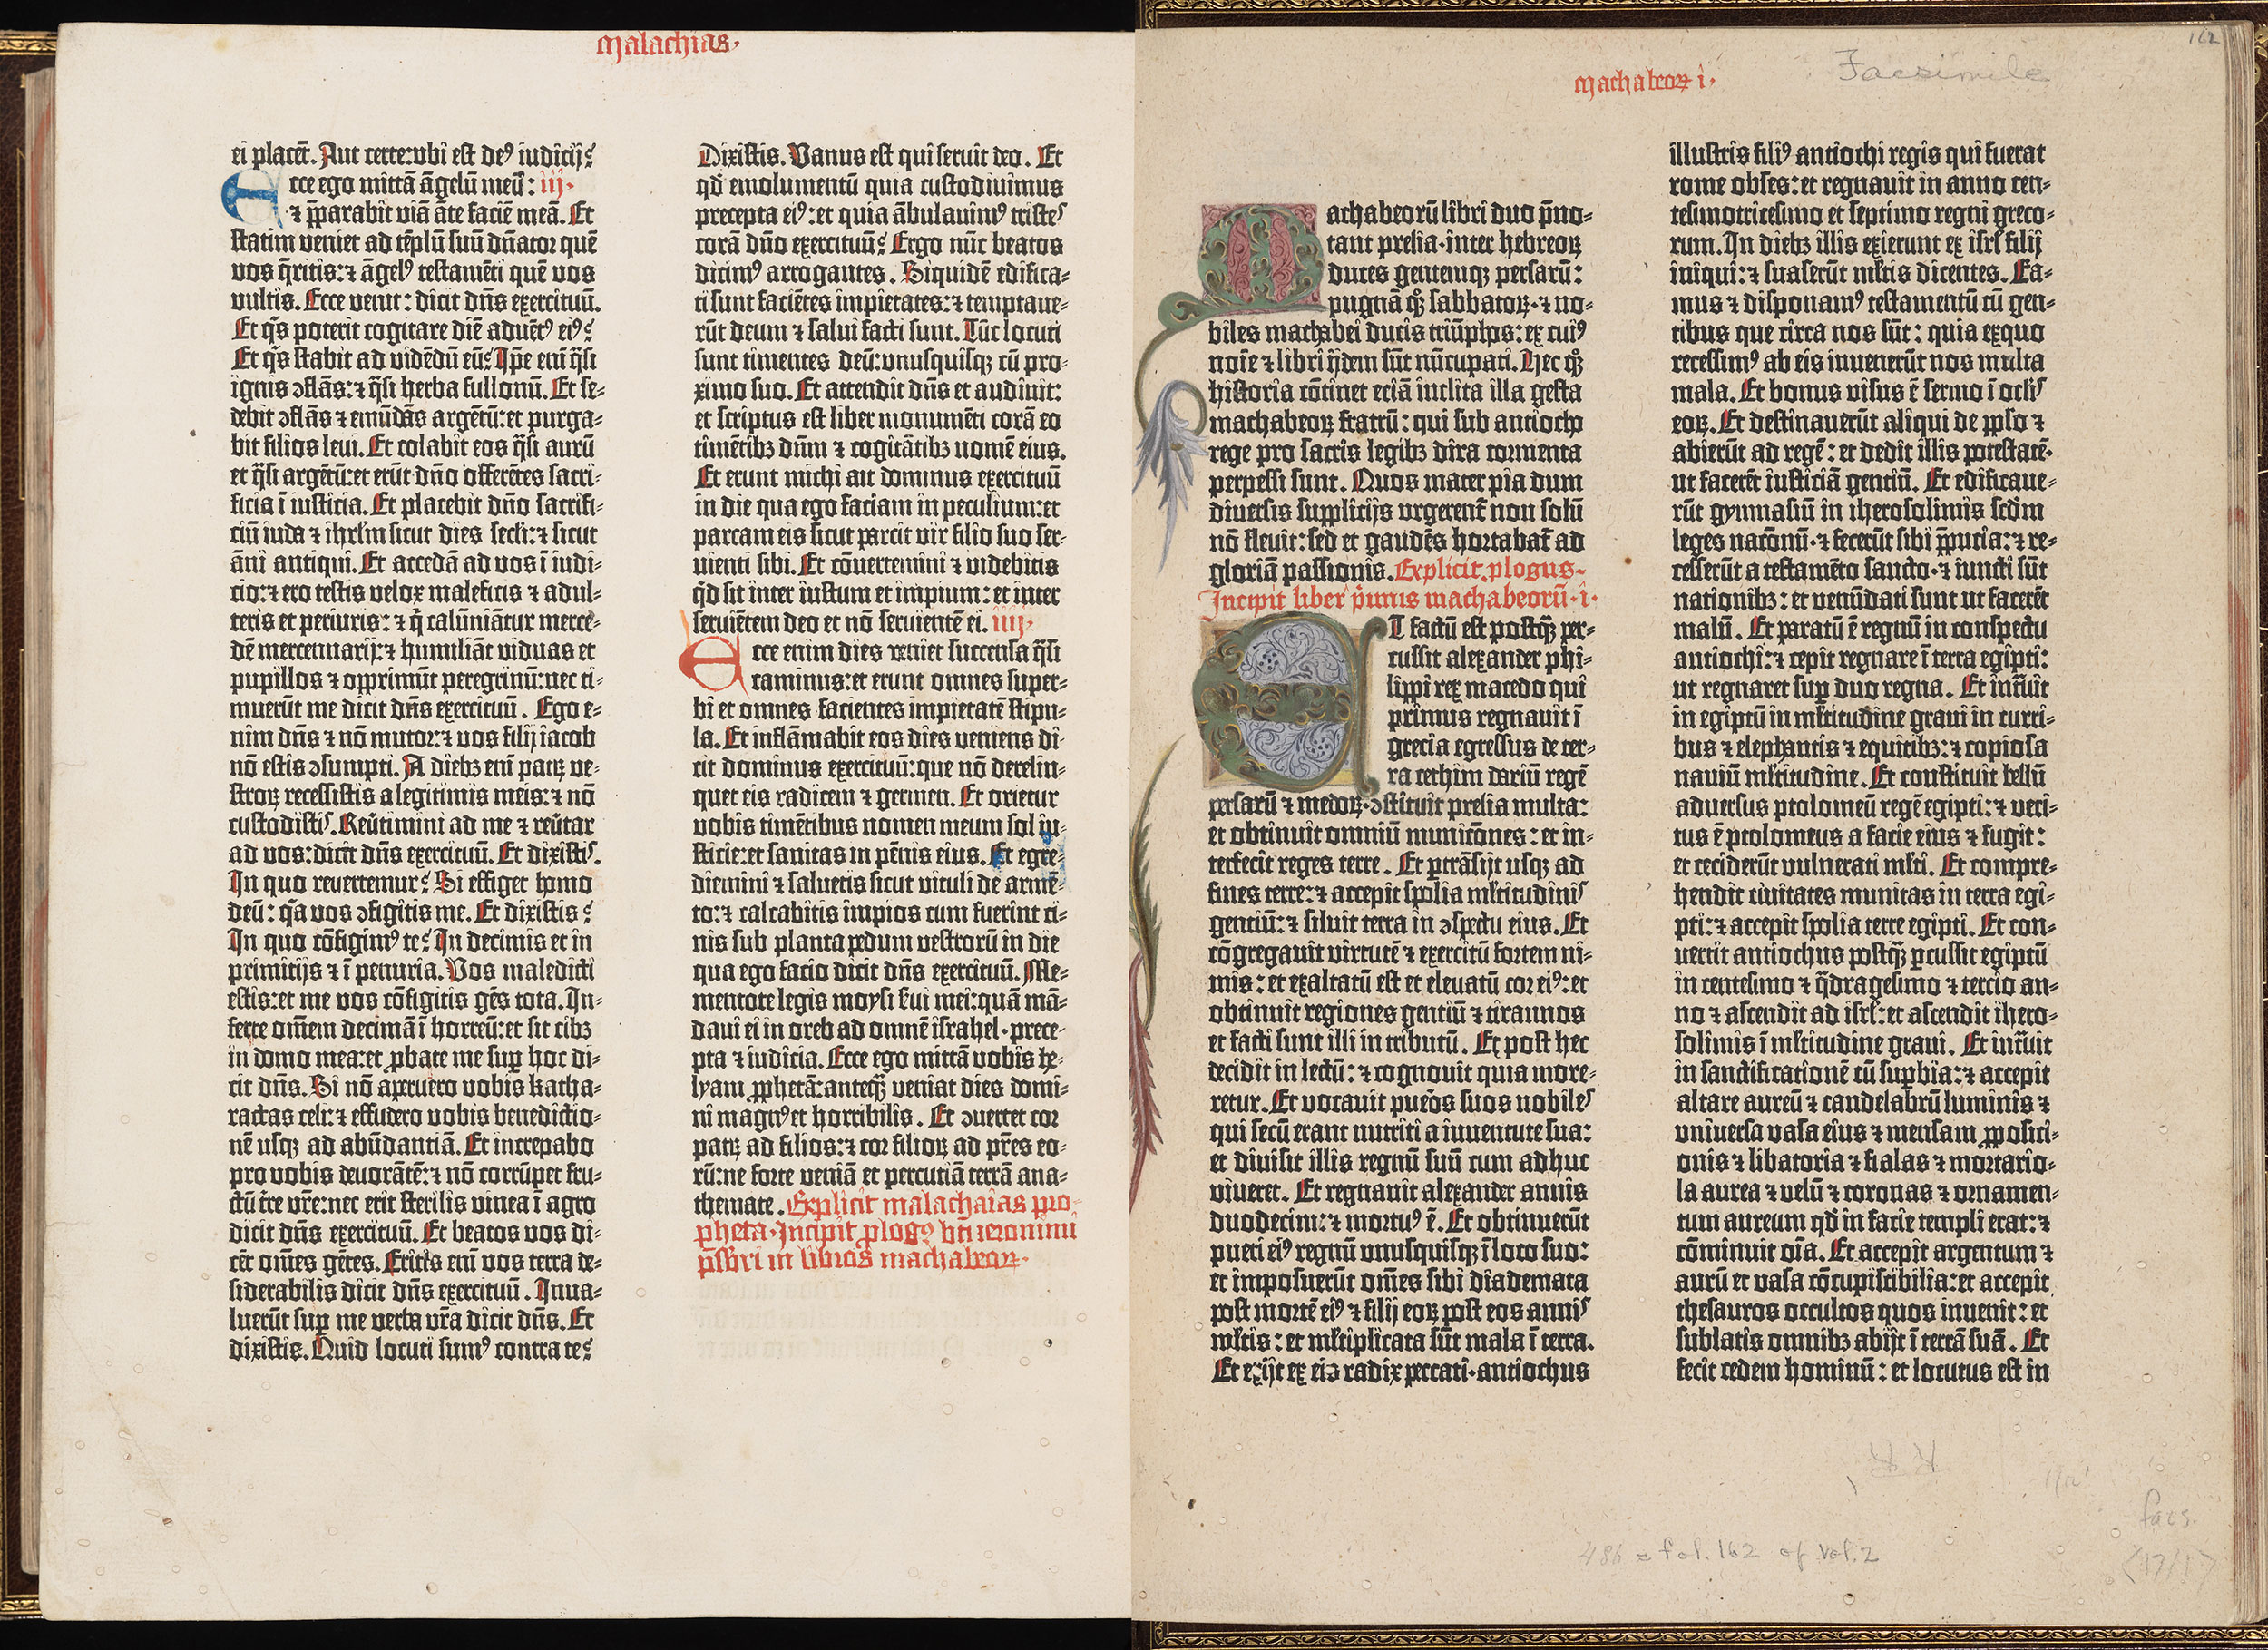 Malachias.
ei placēt. Aut certe: ubi est deꝰ iudicij?
Ecce ego mittā āgelū meū: iij.
⁊ p̄parabit viā āte faciē meā. Et
statim veniet ad tēplū suū dn̄ator quē
vos q̄ritis: ⁊ āgelꝰ testamēti quē vos
vultis. Ecce venit: dicit dn̄s exercituū.
Et q̄s poterit cogitare diē aduētꝰ eiꝰ?
Et q̄s stabit ad vidēdū eū? Ip̄e eni q̄si
ignis ↄflās: ⁊ q̄si herba fullonū. Et se-
debit ↄflās ⁊ emūdās argētū: et purga-
bit filios leui. Et colabit eos q̄si aurū
et q̄si argētū: et erūt dn̄o offerētes sacri-
ficia ī iusticia. Et placebit dn̄o sacrifi-
ciū iuda ⁊ ihrl'm sicut dies secl'i: ⁊ sicut
āni antiqui. Et accedā ad vos ī iudi-
cio: ⁊ ero testis velox maleficis ⁊ adul-
teris et periuris: ⁊ q̄ calūniātur merce-
dē mercennarij: ⁊ humiliāt viduas et
pupillos ⁊ opprimūt peregrinū: nec ti-
muerūt me dicit dn̄s exercituū. Ego e-
nim dn̄s ⁊ nō mutor: ⁊ vos filij iacob
nō estis ↄsumpti. A diebꝫ eni patꝝ ve-
stroꝝ recessistis a legitimis meis: ⁊ nō
custodistis. Reūtimini ad me ⁊ reūtar
ad vos: dicit dn̄s exercituū. Et dixistis.
In quo reuertemur? Si effiget homo
deū: q̄a vos ↄfigitis me. Et dixistis?
In quo cōfigimꝰ te? In decimis et in
primitijs ⁊ ī penuria. Vos maledicti
estis: et me vos cōfigitis gēs tota. In-
ferte om̄em decimā ī horreū: et sit cibꝫ
in domo mea: et ꝓbate me suꝑ hoc di-
cit dn̄s. Si nō aperuero vobis katha-
ractas celi: ⁊ effudero vobis benedictio-
nē usqꝫ ad abūdantiā. Et increpabo
pro vobis deuorātē: ⁊ nō corrūpet fru-
ctū t̄re vr̄e: nec erit sterilis vinea ī agro
dicit dn̄s exercituū. Et beatos vos di-
cēt om̄es gētes. Eritis eni vos terra de-
siderabilis dicit dn̄s exercituū. Inua-
luerūt suꝑ me verba vr̄a dicit dn̄s. Et
dixistis. Quid locuti sumꝰ contra te?
Dixistis. Vanus est qui seruit deo. Et
qd̄ emolumentū quia custodiuimus
precepta eiꝰ: et quia ābulauimꝰ tristes
corā dn̄o exercituū? Ergo nūc beatos
dicimꝰ arrogantes. Siquidē edifica-
ti sunt faciētes impietates: ⁊ temptaue-
rūt deum ⁊ salui facti sunt. Tūc locuti
sunt timentes deū: unusquisqꝫ cū pro-
ximo suo. Et attendit dn̄s et audiuit:
et scriptus est liber monumēti corā eo
timētibꝫ dn̄m ⁊ cogitātibꝫ nomē eius.
Et erunt michi ait dominus exercituū
in die qua ego faciam in peculium: et
parcam eis sicut parcit vir filio suo ser-
uienti sibi. Et cōuertemini ⁊ videbitis
qd̄ sit inter iustum et impium: et inter
seruiētem deo et nō seruientē ei. iiij.
Ecce enim dies veniet succensa q̄si
caminus: et erunt omnes super-
bi et omnes facientes impietatē stipu-
la. Et inflāmabit eos dies veniens di-
cit dominus exercituū: que nō derelin-
quet eis radicem ⁊ germen. Et orietur
vobis timētibus nomen meum sol iu-
sticie: et sanitas in pēnis eius. Et egre-
diemini ⁊ salietis sicut vituli de armē-
to: ⁊ calcabitis impios cum fuerint ci-
nis sub planta pedum vestrorū in die
qua ego facio dicit dn̄s exercituū. Me-
mentote legis moysi s̄ui mei: quā mā-
daui ei in oreb ad omnē israhel · prece-
pta ⁊ iudicia. Ecce ego mittā vobis he-
lyam ꝓphetā: anteq̄ȝ veniat dies domi-
ni magnꝰ et horribilis. Et ↄuertet cor
patꝝ ad filios: ⁊ cor filioꝝ ad pr̄es eo-
rū: ne forte veniā et percutiā terrā ana-
themate. Explicit malachaias pro-
pheta. Incipit ꝓlogꝰ bt̄i ieronimi
p̄sbri in libros machabeoꝝ.
Machabeoꝝ i.
Facsimile
162
Machabeorū libri duo p̄no-
tant prelia · inter hebreoꝝ
duces gentemqꝫ persarū:
pugnā qꝫ sabbatoꝝ · ⁊ no-
biles machabei ducis triūphos: ex cuiꝰ
noīe ⁊ libri ijdem sūt nūcupati. Hec qꝫ
historia cōtinet eciā inclita illa gesta
machabeoꝝ fratrū: qui sub antiocho
rege pro sacris legibꝫ dira tormenta
perpessi sunt. Quos mater pia dum
diuersis supplicijs urgerent̄ non solū
nō fleuit: sed et gaudēs hortabat̄ ad
gloriā passionis. Explicit ꝓlogus.
Incipit liber p̄mus machabeorū · i ·
ET factū est postq̄ȝ per-
cussit alexander phi-
lippi rex macedo qui
primus regnauit ī
grecia egressus de ter-
ra cethim dariū regē
persarū ⁊ medoꝝ · ↄstituit prelia multa:
et obtinuit omniū municōnes: et in-
terfecit reges terre. Et ꝑtrāsijt usqꝫ ad
fines terre: ⁊ accepit spolia ml'titudinis
gentiū: ⁊ siluit terra in ↄspectu eius. Et
cōgregauit virtutē ⁊ exercitū fortem ni-
mis: et exaltatū est et eleuatū cor eiꝰ: et
obtinuit regiones gentiū ⁊ tirannos
et facti sunt illi in tributū. Et post hec
decidit in lectū: ⁊ cognouit quia more-
retur. Et vocauit pueōs suos nobiles
qui secū erant nutriti a iuuentute sua:
et diuisit illis regnū suū cum adhuc
viueret. Et regnauit alexander annis
duodecim: ⁊ mortuꝰ ē. Et obtinuerūt
pueri eiꝰ regnū unusquisqꝫ ī loco suo:
et imposuerūt om̄es sibi diademata
post mortē eiꝰ ⁊ filij eoꝝ post eos annis
ml'tis: et ml'tiplicata sūt mala ī terra.
Et exijt ex eis radix peccati · antiochus
illustris filiꝰ antiochi regis qui fuerat
rome obses: et regnauit in anno cen-
tesimotricesimo et septimo regni greco-
rum. In diebꝫ illis exierunt ex isrl' filij
iniqui: ⁊ suaserūt ml'tis dicentes. Ea-
mus ⁊ disponamꝰ testamentū cū gen-
tibus que circa nos sūt: quia exquo
recessimꝰ ab eis inuenerūt nos multa
mala. Et bonus visus ē sermo ī ocl'is
eoꝝ. Et destinauerūt aliqui de pp̄lo ⁊
abierūt ad regē: et dedit illis potestatē ·
ut facerēt iusticiā gentiū. Et edificaue-
rūt gymnasiū in iherosolimis scd̄m
leges nacōnū · ⁊ fecerūt sibi p̄pucia: ⁊ re-
cesserūt a testamēto sancto · ⁊ iuncti sūt
nationibꝫ: et venūdati sunt ut facerēt
malū. Et paratū ē regnū in conspectu
antiochi: ⁊ cepit regnare ī terra egipti:
ut regnaret suꝑ duo regna. Et int̄uit
in egiptū in ml'titudine graui in curri-
bus ⁊ elephantis ⁊ equitibꝫ: ⁊ copiosa
nauiū ml'titudine. Et constituit bellū
aduersus ptolomeū regē egipti: ⁊ veri-
tus ē ptolomeus a facie eius ⁊ fugit:
et ceciderūt vulnerati ml'ti. Et compre-
hendit ciuitates munitas in terra egi-
pti: ⁊ accepit spolia terre egipti. Et con-
uertit antiochus postq̄ȝ ꝑcussit egiptū
in centesimo ⁊ q̄dragesimo ⁊ tercio an-
no ⁊ ascendit ad isrl': et ascendit ihero-
solimis ī ml'titudine graui. Et int̄uit
in sanctificationē cū suꝑbia: ⁊ accepit
altare aureū ⁊ candelabrū luminis ⁊
uniuersa vasa eius ⁊ mensam ꝓpositi-
onis ⁊ libatoria ⁊ fialas ⁊ mortario-
la aurea ⁊ velū ⁊ coronas ⁊ ornamen-
tum aureum qd̄ in facie templi erat: ⁊
cōminuit oīa. Et accepit argentum ⁊
aurū et vasa cōcupiscibilia: et accepit
thesauros occultos quos inuenit: et
sublatis omnibꝫ abijt ī terrā suā. Et
fecit cedem hominū: et locutus est in
facs.
486 = fol. 162 of vol. 2